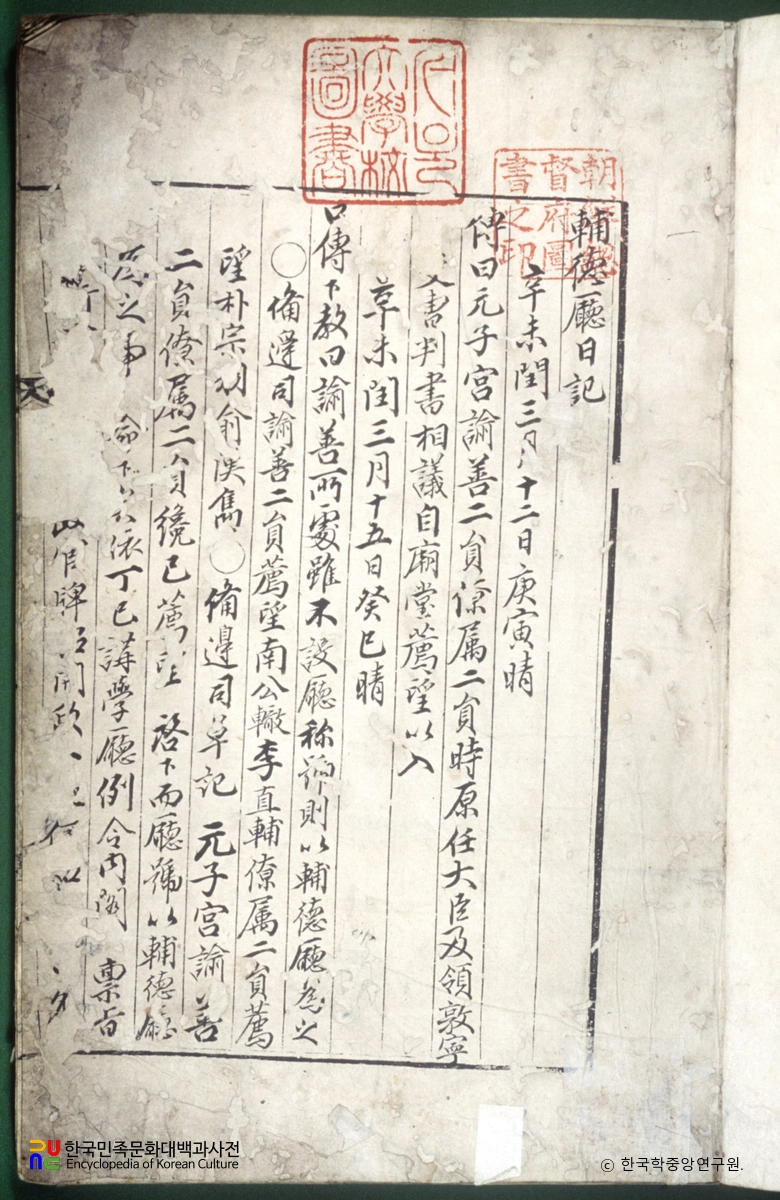 輔德廳日記
辛未閏三月十二日庚寅晴
傳曰元子宮諭善二員僚屬二員時原任大臣及領敦寧
吏書判書相議自廟堂薦望以入
辛未閏三月十五日癸巳晴
口傳下敎曰諭善所處雖不設廳称號則以輔德廳爲之
○備邊司諭善二員薦望南公轍李直輔僚屬二員薦
望朴宗 兪漢雋○備邊司草記 元子宮諭善
二員僚屬二員纔已薦望 啓下而廳號以輔德廳
爲之事 命下矣依丁巳講學廳例令內閣 稟旨
牌 開政
朝鮮總督府圖書之印
大學校圖書
한국민족문화대백과사전
Encyclopedia of Korean Culture
© 한국학중앙연구원.